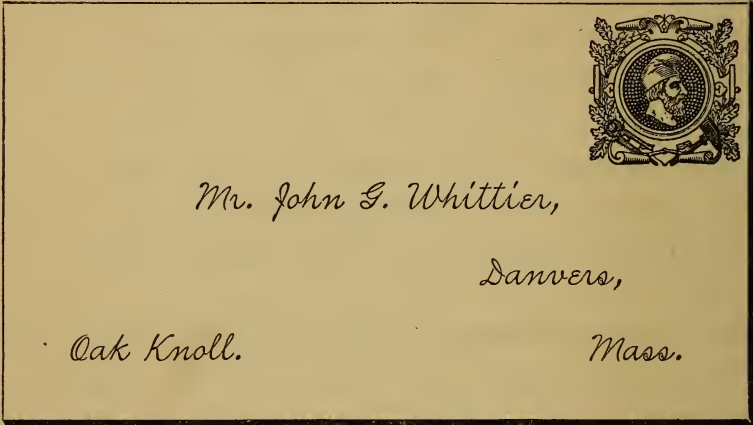 Mr. John G. Whittier,
Danvers,
Oak Knoll. Mass.